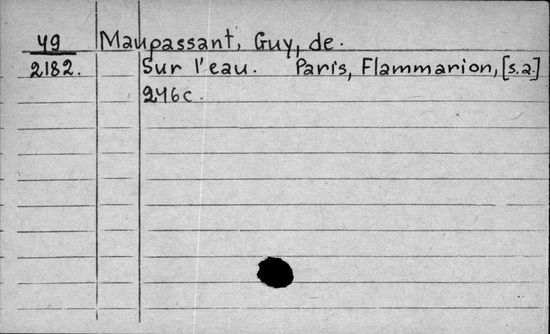 49 Maupassant, Guy, de.
2182. Sur l'eau. Paris, Flammarion, [s.a.]
246c.